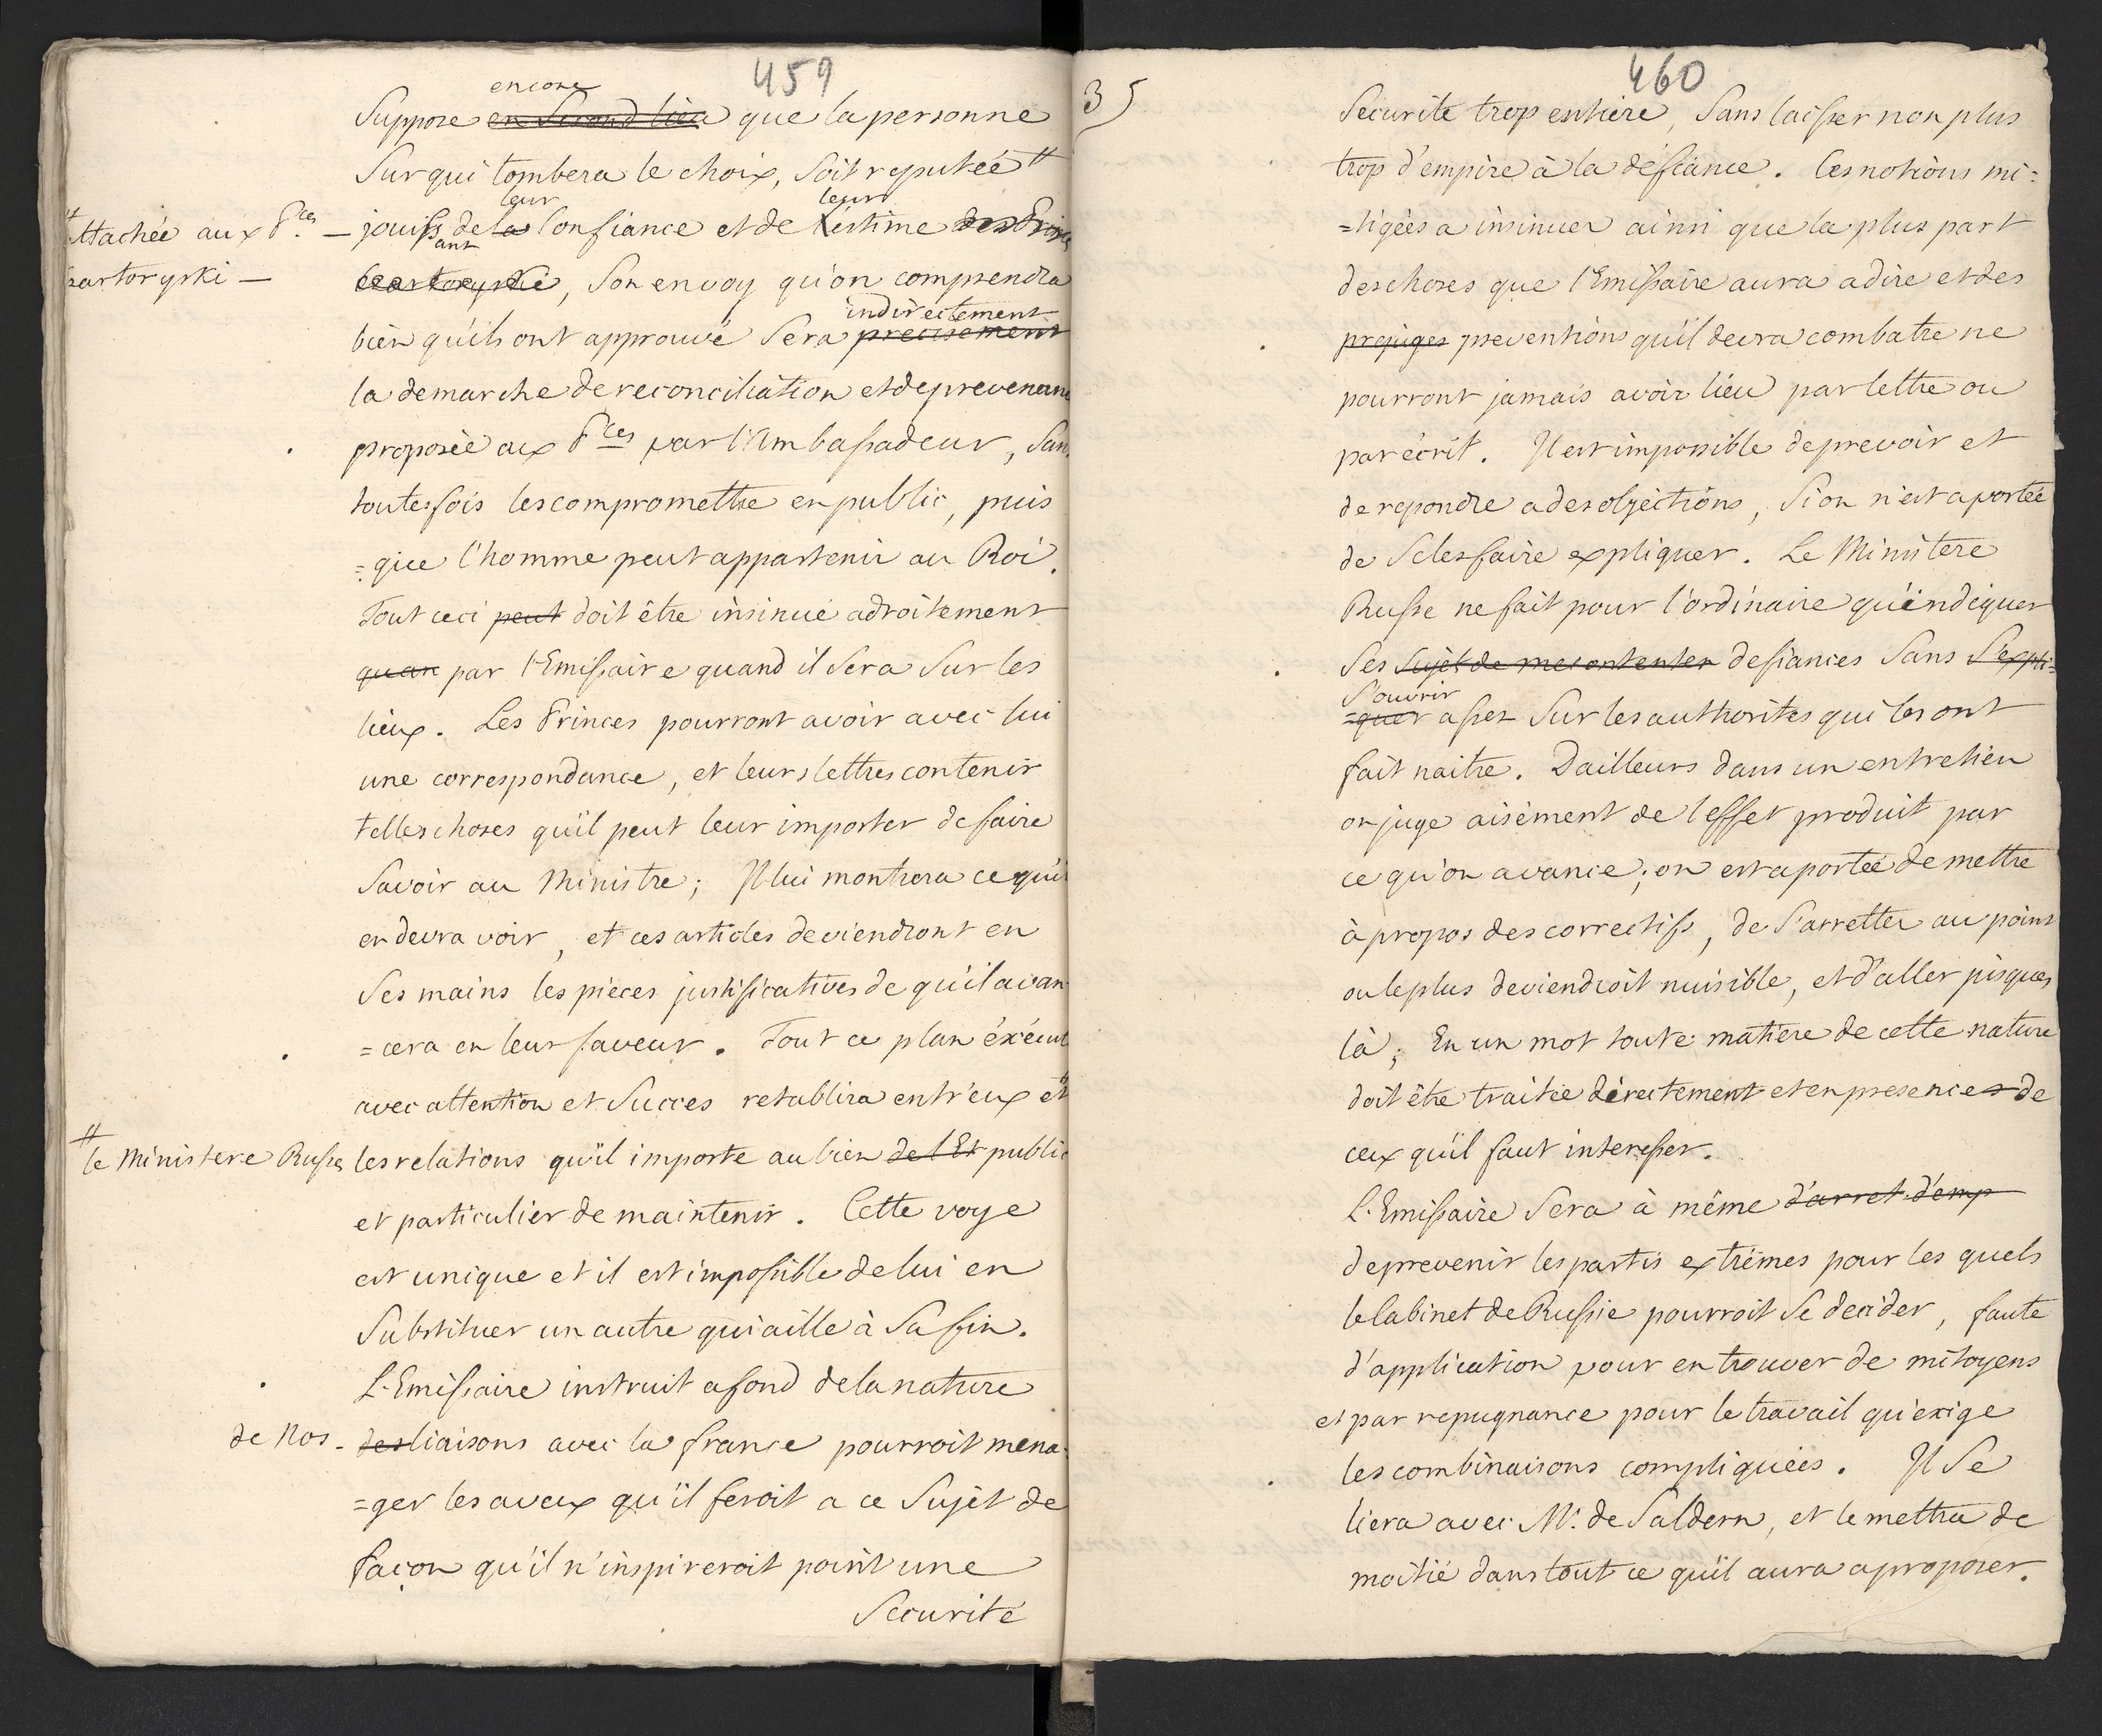 459
encore
Suppose en second lieu que la personne
Sur qui tombera le choix, soit reputée #
leur leur
# attachée aux P.ces
jouiss de la Confiance et de l'estime des Princes
ant
Czartoryski —
Czartoryski, Son envoy qu'on comprendra
indirectement
bien qu'ils ont approuvé Sera precisement
la demarche de reconciliation et de prevenance
proposée aux P.ces par l'Ambassadeur, Sans
toutesfois les compromettre en public, puis
=que l'homme peut appartenir au Roi.
Tout ceci peut doit être insinué adroitement
quan par l'Emissaire quand il Sera Sur les
lieux. Les Princes pourront avoir avec lui
une correspondance, et leurs lettres contenir
telles choses qu'il peut leur importer de faire
Savoir au Ministre; Il lui montrera ce qu'il
en devra voir, et ces articles deviendront en
Ses mains les pièces justificatives de qu'il avan
=cera en leur faveur. Tout ce plan éxécuté
avec attention et Succes retablira entr'eux et #
# le Ministere Russe
les relations qu'il importe au bien de l'Et public
et particulier de maintenir. Cette voye
est unique et il est impossible de lui en
Substituer un autre qui aille à Sa fin.
L'Emissaire instruit a fond de la nature
de Nos —
des liaisons avec la france pourroit mena
=ger les aveux qu'il feroit a ce Sujet de
façon qu'il n'inspireroit point une
Securité
35
460
Securite trop entiere, Sans laisser non plus
trop d'empire à la défiance. Ces notions mi=
=tigées a insinuer ainsi que la plus part
des choses que l'Emissaire aura a dire et des
prejuges preventions qu'il devra combatre ne
pourront jamais avoir lieu par lettre ou
par écrit. Il est impossible de prevoir et
de repondre a des objections, Si on n'est a portée
de Se les faire expliquer. Le Ministere
Russe ne fait pour l'ordinaire qu'indiquer
Ses Sujets de mecontenter defiances Sans S'expli=
S'ouvrir
=quer assez Sur les authorites qui les ont
fait naitre. Dailleurs dans un entretien
on juge aisément de l'effet produit par
ce qu'on avance; on est a portée de mettre
à propos des correctifs, de S'arretter au point
ou le plus deviendroit nuisible, et d'aller jusques
là; En un mot toute matiere de cette nature
doit être traitée directement et en presence de
ceux qu'il faut interesser.
L'Emissaire Sera à même d'arret d'emp
de prevenir les partis extrêmes pour les quels
le Cabinet de Russie pourroit Se decider, faute
d'application pour en trouver de mitoyens
et par repugnance pour le travail qu'exige
les combinaisons compliquées. Il Se
liera avec Mr. de Saldern, et le mettra de
moitié dans tout ce qu'il aura a proposer.